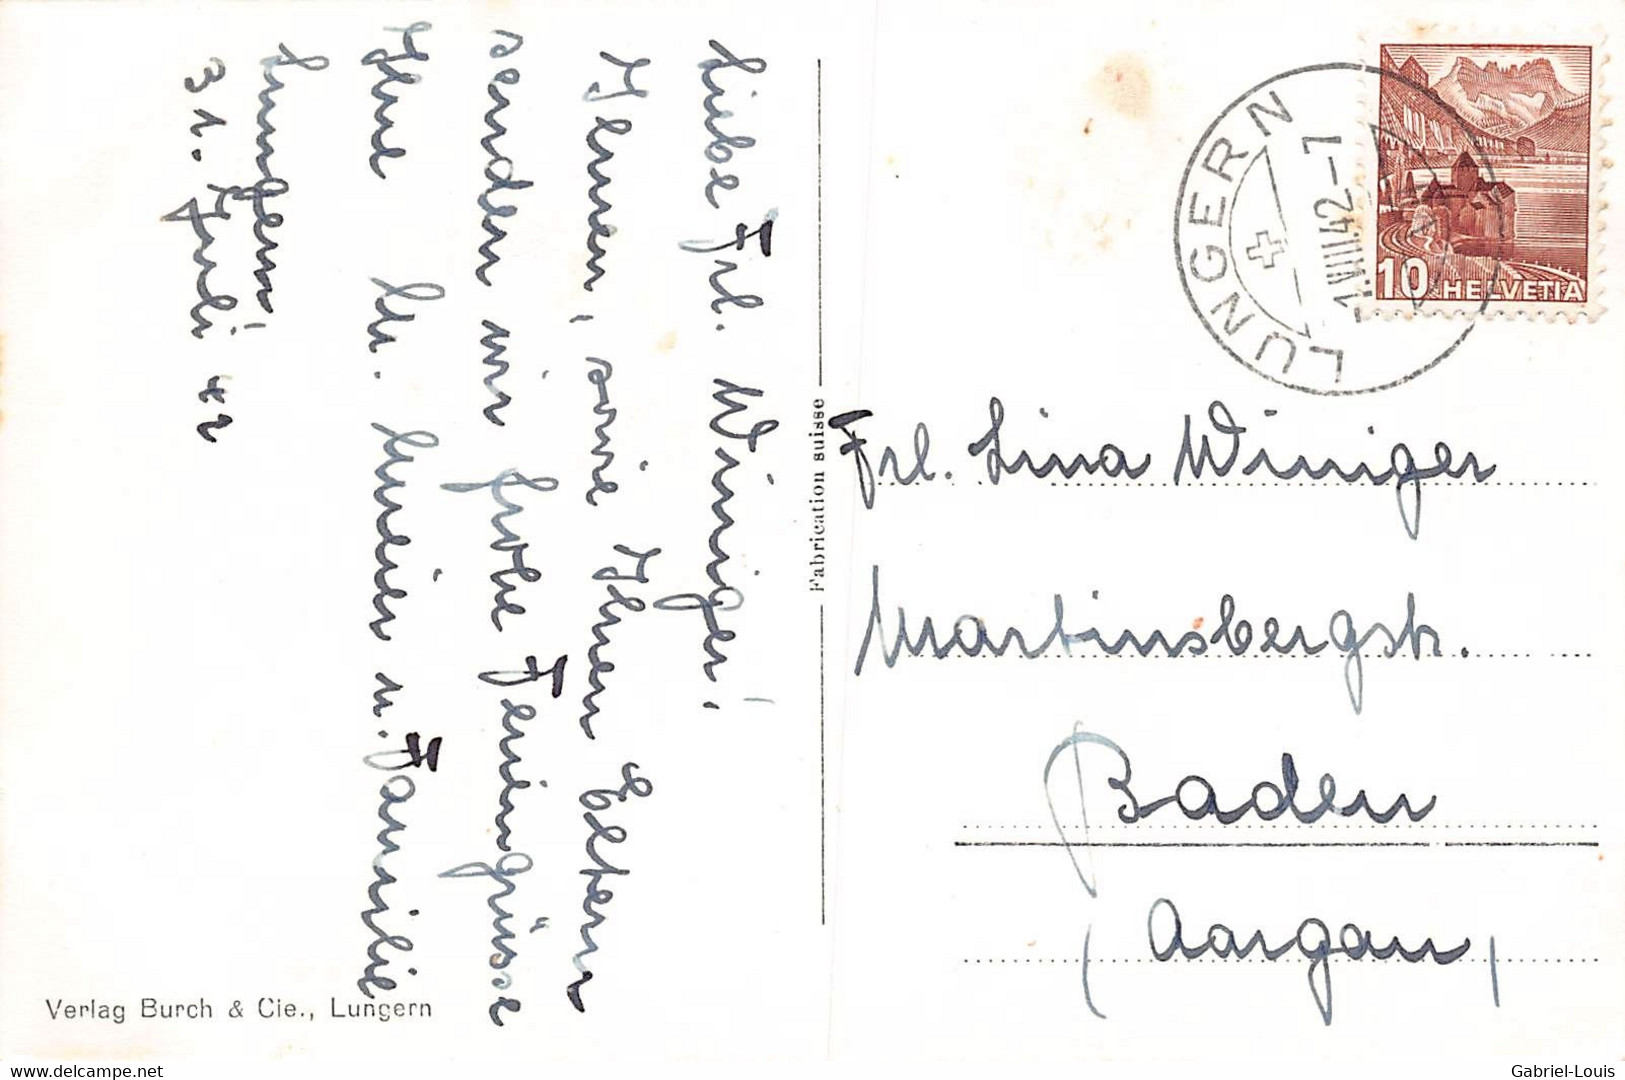 Liebe Frl. Winiger!
Ihnen, sowie Ihren Eltern
senden wir frohe Feriengrüsse
Ihre Dr. Meier u. Familie
Lungern,
31. Juli 42
Verlag Burch & Cie., Lungern
Fabrication suisse
LUNGERN
-1.VIII.42-7
10 HELVETIA
Frl. Lina Winiger
Martinsbergstr.
Baden
(Aargau)
Gabriel-Louis